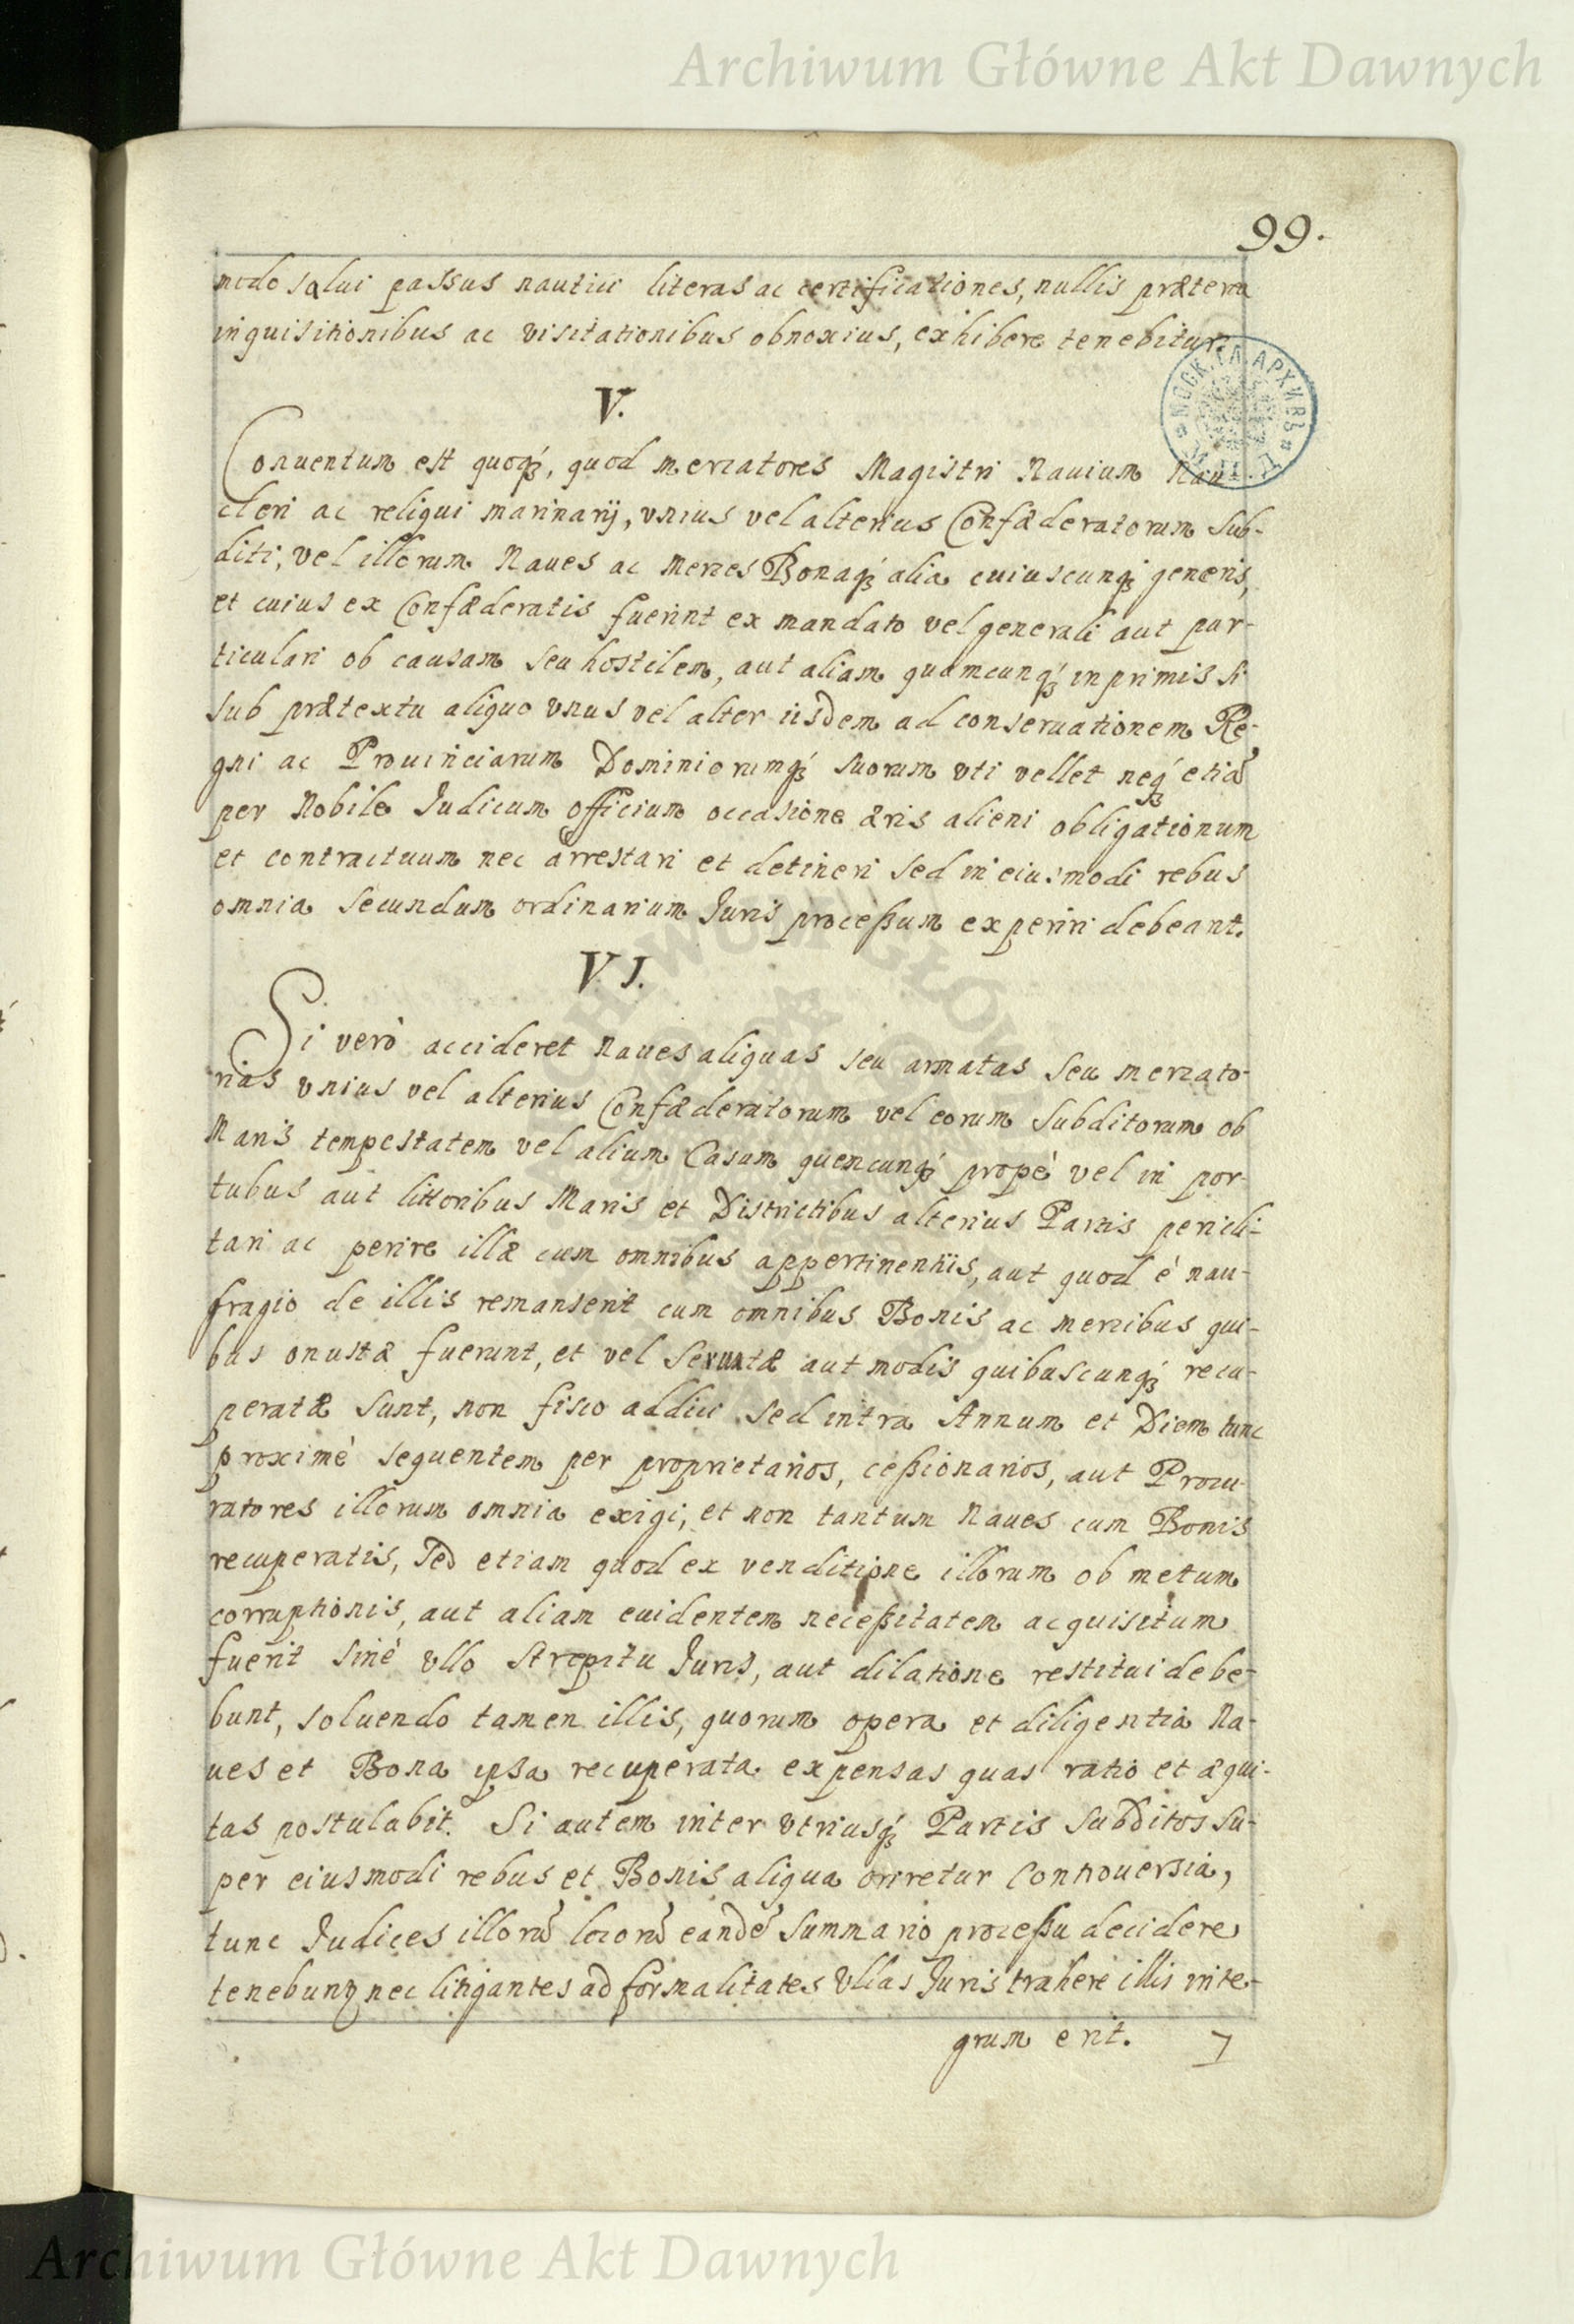 Archiwum Główne Akt Dawnych
99.
modo salui passus nautici literas ac certificationes, nullis præterea
inquisitionibus ac visitationibus obnoxius, exhibere tenebitur.
V.
Conuentum est quoq́ꝫ, quod mercatores Magistri Nauium Nau-
cleri ac reliqui marinarij, vnius vel alterius Confæderatorum Sub-
diti, vel illorum Naues ac merces Bonaq́ꝫ alia cuiuscunq́ꝫ generis,
et cuius ex Confæderatis fuerint ex mandato vel generali aut par-
ticulari ob causam seu hostilem, aut aliam quamcunq́ꝫ inprimis si
sub prætextu aliquo vnus vel alter iisdem ad conseruationem Re-
gni ac Prouinciarum Dominiorumq́ꝫ suorum vti vellet neq́ꝫ etiā
per Nobile Iudicum officium occasione æris alieni obligationum
et contractuum nec arrestari et detineri sed in eiusmodi rebus
omnia secundum ordinarium Iuris processum experiri debeant.
VI.
Si verò accideret Naues aliquas seu armatas seu mercato-
rias vnius vel alterius Confæderatorum vel eorum Subditorum ob
Maris tempestatem vel alium Casum quencunq́ꝫ propè vel in por-
tubus aut littoribus Maris et Districtibus alterius Partis pericli-
tari ac perire illæ cum omnibus appertinentiis, aut quod è nau-
fragio de illis remanserit cum omnibus Bonis ac mercibus qui-
bus onustæ fuerunt, et vel seruatæ aut modis quibuscunq́ꝫ recu-
peratæ sunt, non fisco addici sed intra Annum et Diem tunc
proximè sequentem per proprietarios, cessionarios, aut Procu-
ratores illorum omnia exigi, et non tantum Naues cum Bonis
recuperatis, sed etiam quod ex venditione illorum ob metum
corruptionis, aut aliam euidentem necessitatem acquisitum
fuerit sinè vllo strepitu Iuris, aut dilatione restitui debe-
bunt, soluendo tamen illis, quorum opera et diligentia Na-
ues et Bona ipsa recuperata expensas quas ratio et æqui-
tas postulabit. Si autem inter vtriusq́ꝫ Partis Subditos su-
per eiusmodi rebus et Bonis aliqua oriretur controuersia,
tunc Iudices illorū locorū eandē summario processu decidere
tenebunꝫ nec litigantes ad formalitates vllas Iuris trahere illis inte-
grum erit.
Archiwum Główne Akt Dawnych